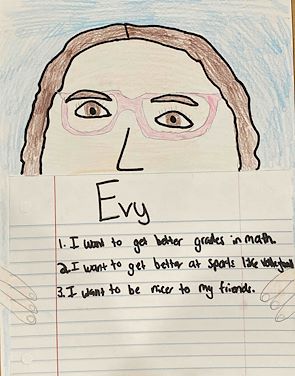 Evy
1. I want to get better grades in math.
2. I want to get better at sports like volleyball
3. I want to be nicer to my friends.